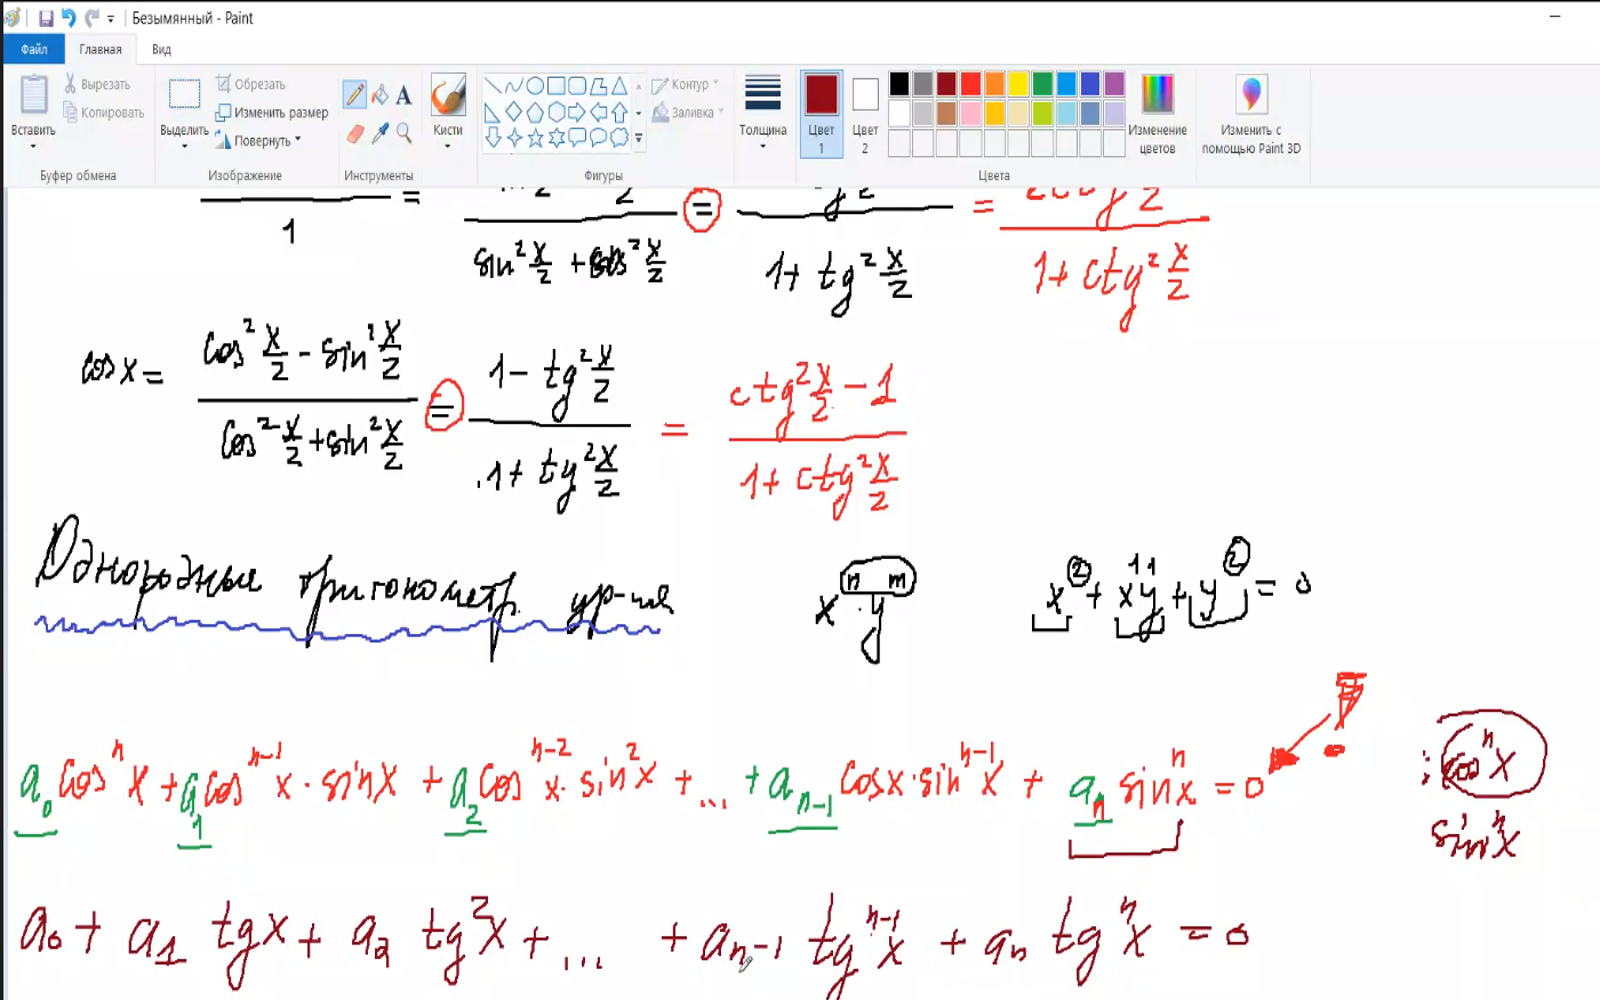 Безымянный - Paint
Файл Главная Вид
Вставить Вырезать Копировать Буфер обмена
Выделить Обрезать Изменить размер Повернуть Изображение
Инструменты
Кисти
Контур Заливка Фигуры
Толщина
Цвет 1 Цвет 2 Изменение цветов Цвета
Изменить с помощью Paint 3D
1 = sin² x/2 + cos² x/2 = 1 + tg² x/2 = 1 + ctg² x/2
cos x = (cos² x/2 - sin² x/2)/(cos² x/2 + sin² x/2) = (1 - tg² x/2)/(1 + tg² x/2) = (ctg² x/2 - 1)/(1 + ctg² x/2)
Однородные тригонометр. ур-ия xⁿ · yᵐ x² + x¹y¹ + y² = 0
a₀ cosⁿ x + a₁ cosⁿ⁻¹ x · sin x + a₂ cosⁿ⁻² x · sin² x + ... + aₙ₋₁ cos x · sinⁿ⁻¹ x + aₙ sinⁿ x = 0 ! : cosⁿ x
sinⁿ x
a₀ + a₁ tg x + a₂ tg² x + ... + aₙ₋₁ tgⁿ⁻¹ x + aₙ tgⁿ x = 0